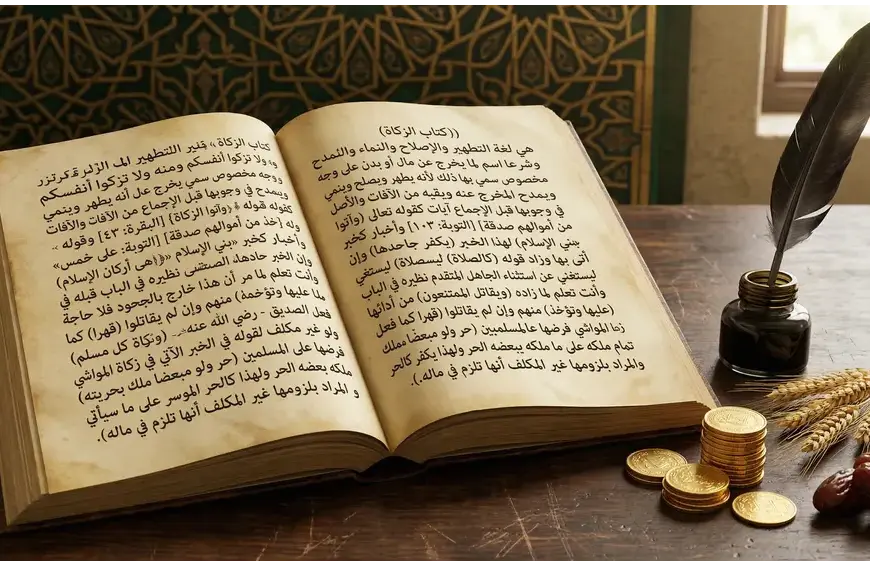 ((كتاب الزكاة))
هي لغة التطهير والإصلاح والنماء والمدح
وشرعا اسم لما يخرج عن مال أو بدن على وجه
مخصوص سمي بها ذلك لأنه يطهر ويصلح وينمي
ويمدح المخرج عنه ويقيه من الآفات والأصل
في وجوبها قبل الإجماع آيات كقوله تعالى (وآتوا
من أموالهم صدقة) [التوبة: ١٠٣] وأخبار كخبر
بني الإسلام) لهذا الخبر (يكفر جاحدها) وإن
أتى بها وزاد قوله (كالصلاة) ليسصلاة) ليستغي
ليستغني عن استثناء الجاهل المتقدم نظيره في الباب
وأنت تعلم لما زاده (ويقاتل الممتنعون) من أدائها
(عليها وتؤخذ) منهم وإن لم يقاتلوا (قهرا كما فعل
زما المواشي فرضها عالمسلمين (حر ولو مبعضا
تمام ملكه على ما ملكه ببعضه الحر ولهذا يكفر كالحر
والمراد بلزومها غير المكلف أنها تلزم في ماله.).
كتاب الزكاة» التطهير
ولا تزكوا أنفسكم ومنه ولا تزكوا أنفسكم
ووجه مخصوص سمي يخرج عل أنه يطهر وينمي
ويمدح في وجوبها قبل الإجماع من الآفات والآفات
كقوله قوله {وآتوا الزكاة} [البقرة: ٤٣] وقوله
وله [خذ من أموالهم صدقة] [التوبة: على خمس»
وأخبار كخبر «بني الإسلام (هى أركان الإسلام)
وإن الخبر نظيره في الباب قبله في
وأنت تعلم لما مر أن هذا خارج بالجحود فلا حاجة
عليها وتؤخذ) منهم وإن لم يقاتلوا (قهرا) كما
فعل الصديق - رضي الله عنه (وزكاة كل مسلم)
ولو غير مكلف لقوله في الخبر الآتي في زكاة المواشي
فرضها على المسلمين (حر ولو مبعضا ملك بحريته)
ملكه بعضه الحر ولهذا كالحر الموسر على ما سيأتي
و المراد بلزومها غير المكلف أنها تلزم في ماله).